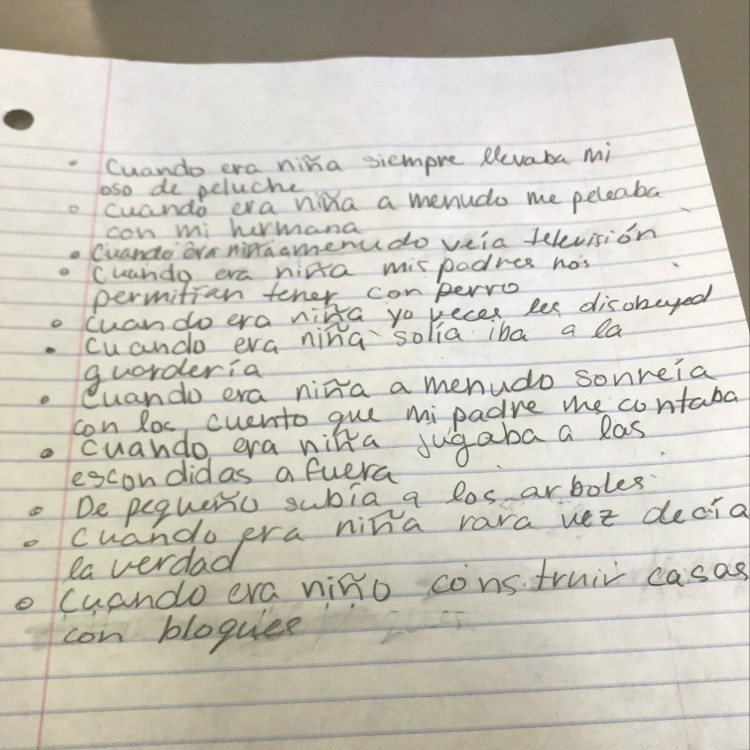 • Cuando era niña siempre llevaba mi
oso de peluche
• cuando era niña a menudo me peleaba
con mi hermana
• Cuando era niña a menudo veía televisión
• Cuando era niña mis padres nos
permitían tener con perro
• Cuando era niña yo veces les disobeyed
• Cuando era niña solía iba a la
guardería
• Cuando era niña a menudo sonreía
con los cuento que mi padre me contaba
• Cuando era niña jugaba a las
escondidas a fuera
• De pequeño subía a los arboles
• Cuando era niña rara vez decía
la verdad
• Cuando era niño construir casas
con bloques